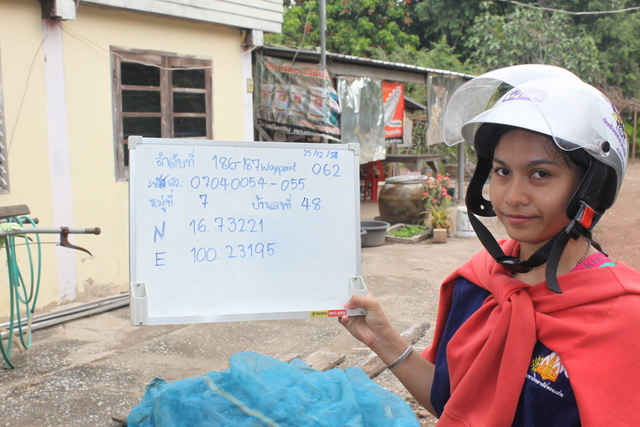 25/12/58
ลำดับที่ 186-187 Waypoint 062
รหัส สว. 07040054-055
หมู่ที่ 7 บ้านเลขที่ 48
N 16.73221
E 100.23195